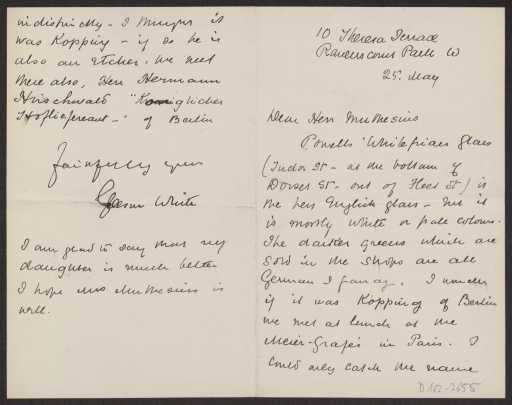 10 Theresa Terrace
Ravenscourt Park W
25. May
Dear Herr Muthesius
Powells' Whitefriars glass
(Tudor St - at the bottom of
Dorset St - out of Fleet St) is
the best English glass - but it
is mostly white or pale colours.
The darker greens which are
sold in the shops are all
German I fancy. I wonder
if it was Köpping of Berlin
we met at lunch at the
Meier-Gräfe's in Paris. I
could only catch the name
indistinctly - I thought it
was Köpping - if so he is
also an etcher. We met
there also, Herr Hermann
Hirschwald "Königlicher
Hoflieferant -" of Berlin
Faithfully yours
Gleeson White
I am glad to say that my
daughter is much better
I hope Mrs Muthesius is
well.
D 102-2655